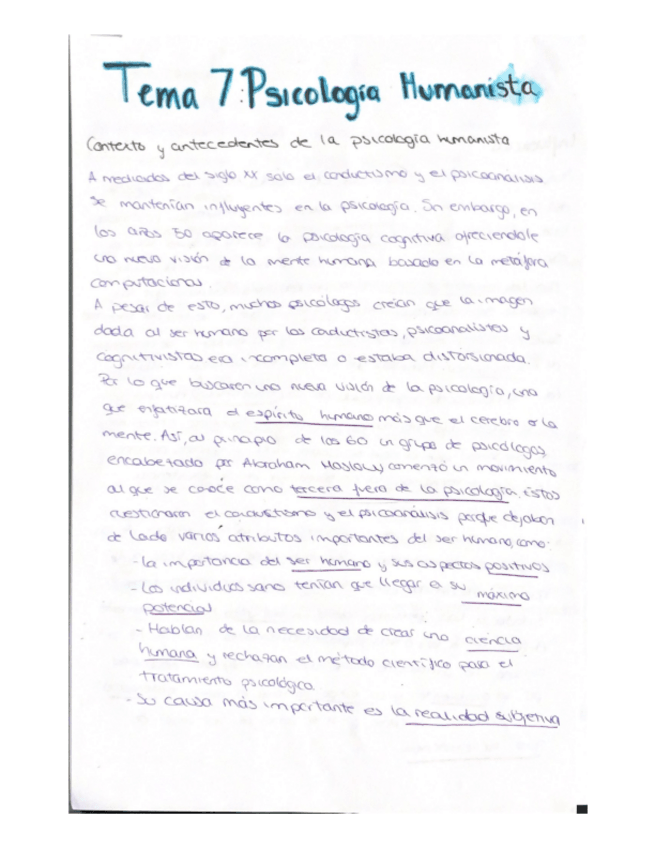 Tema 7: Psicología Humanista
Contexto y antecedentes de la psicología humanista
A mediados del siglo XX solo el conductismo y el psicoanálisis
se mantenían influyentes en la psicología. Sin embargo, en
los años 50 aparece la psicología cognitiva ofreciendole
una nueva visión de la mente humana basada en la metáfora
computacional.
A pesar de esto, muchos psicólogos creían que la imagen
dada al ser humano por los conductistas, psicoanalistas y
cognitivistas era incompleta o estaba distorsionada.
Por lo que buscaron una nueva visión de la psicología, una
que enfatizara el espíritu humano más que el cerebro o la
mente. Así, al principio de los 60 un grupo de psicólogos
encabezado por Abraham Maslow comenzó un movimiento
al que se conoce como tercera fuerza de la psicología. Estos
cuestionaron el conductismo y el psicoanálisis porque dejaban
de lado varios atributos importantes del ser humano, como:
- la importancia del ser humano y sus aspectos positivos
- Los individuos sano tenían que llegar a su máximo
potencial
- Hablan de la necesidad de crear una ciencia
humana y rechazan el método científico para el
tratamiento psicológico
- Su causa más importante es la realidad subjetiva